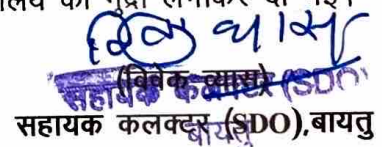 की मुद्रा लगाकर
(विवेक व्यास)
सहायक कलक्टर (SDO)
बायतु
सहायक कलक्टर (SDO),बायतु